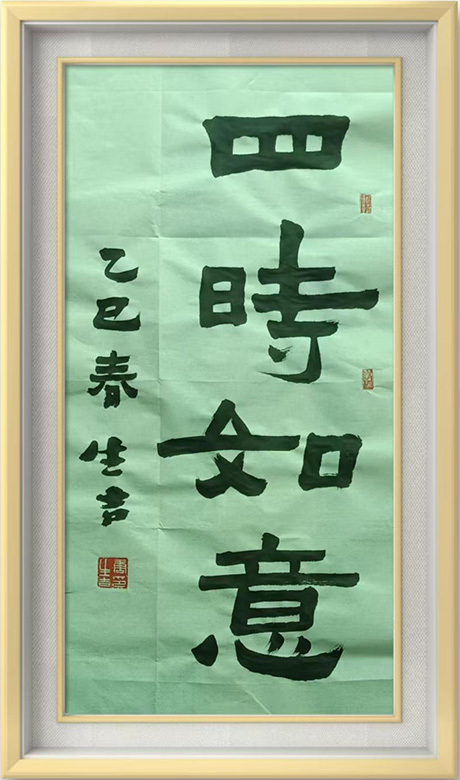 四時如意
乙巳春 生吉